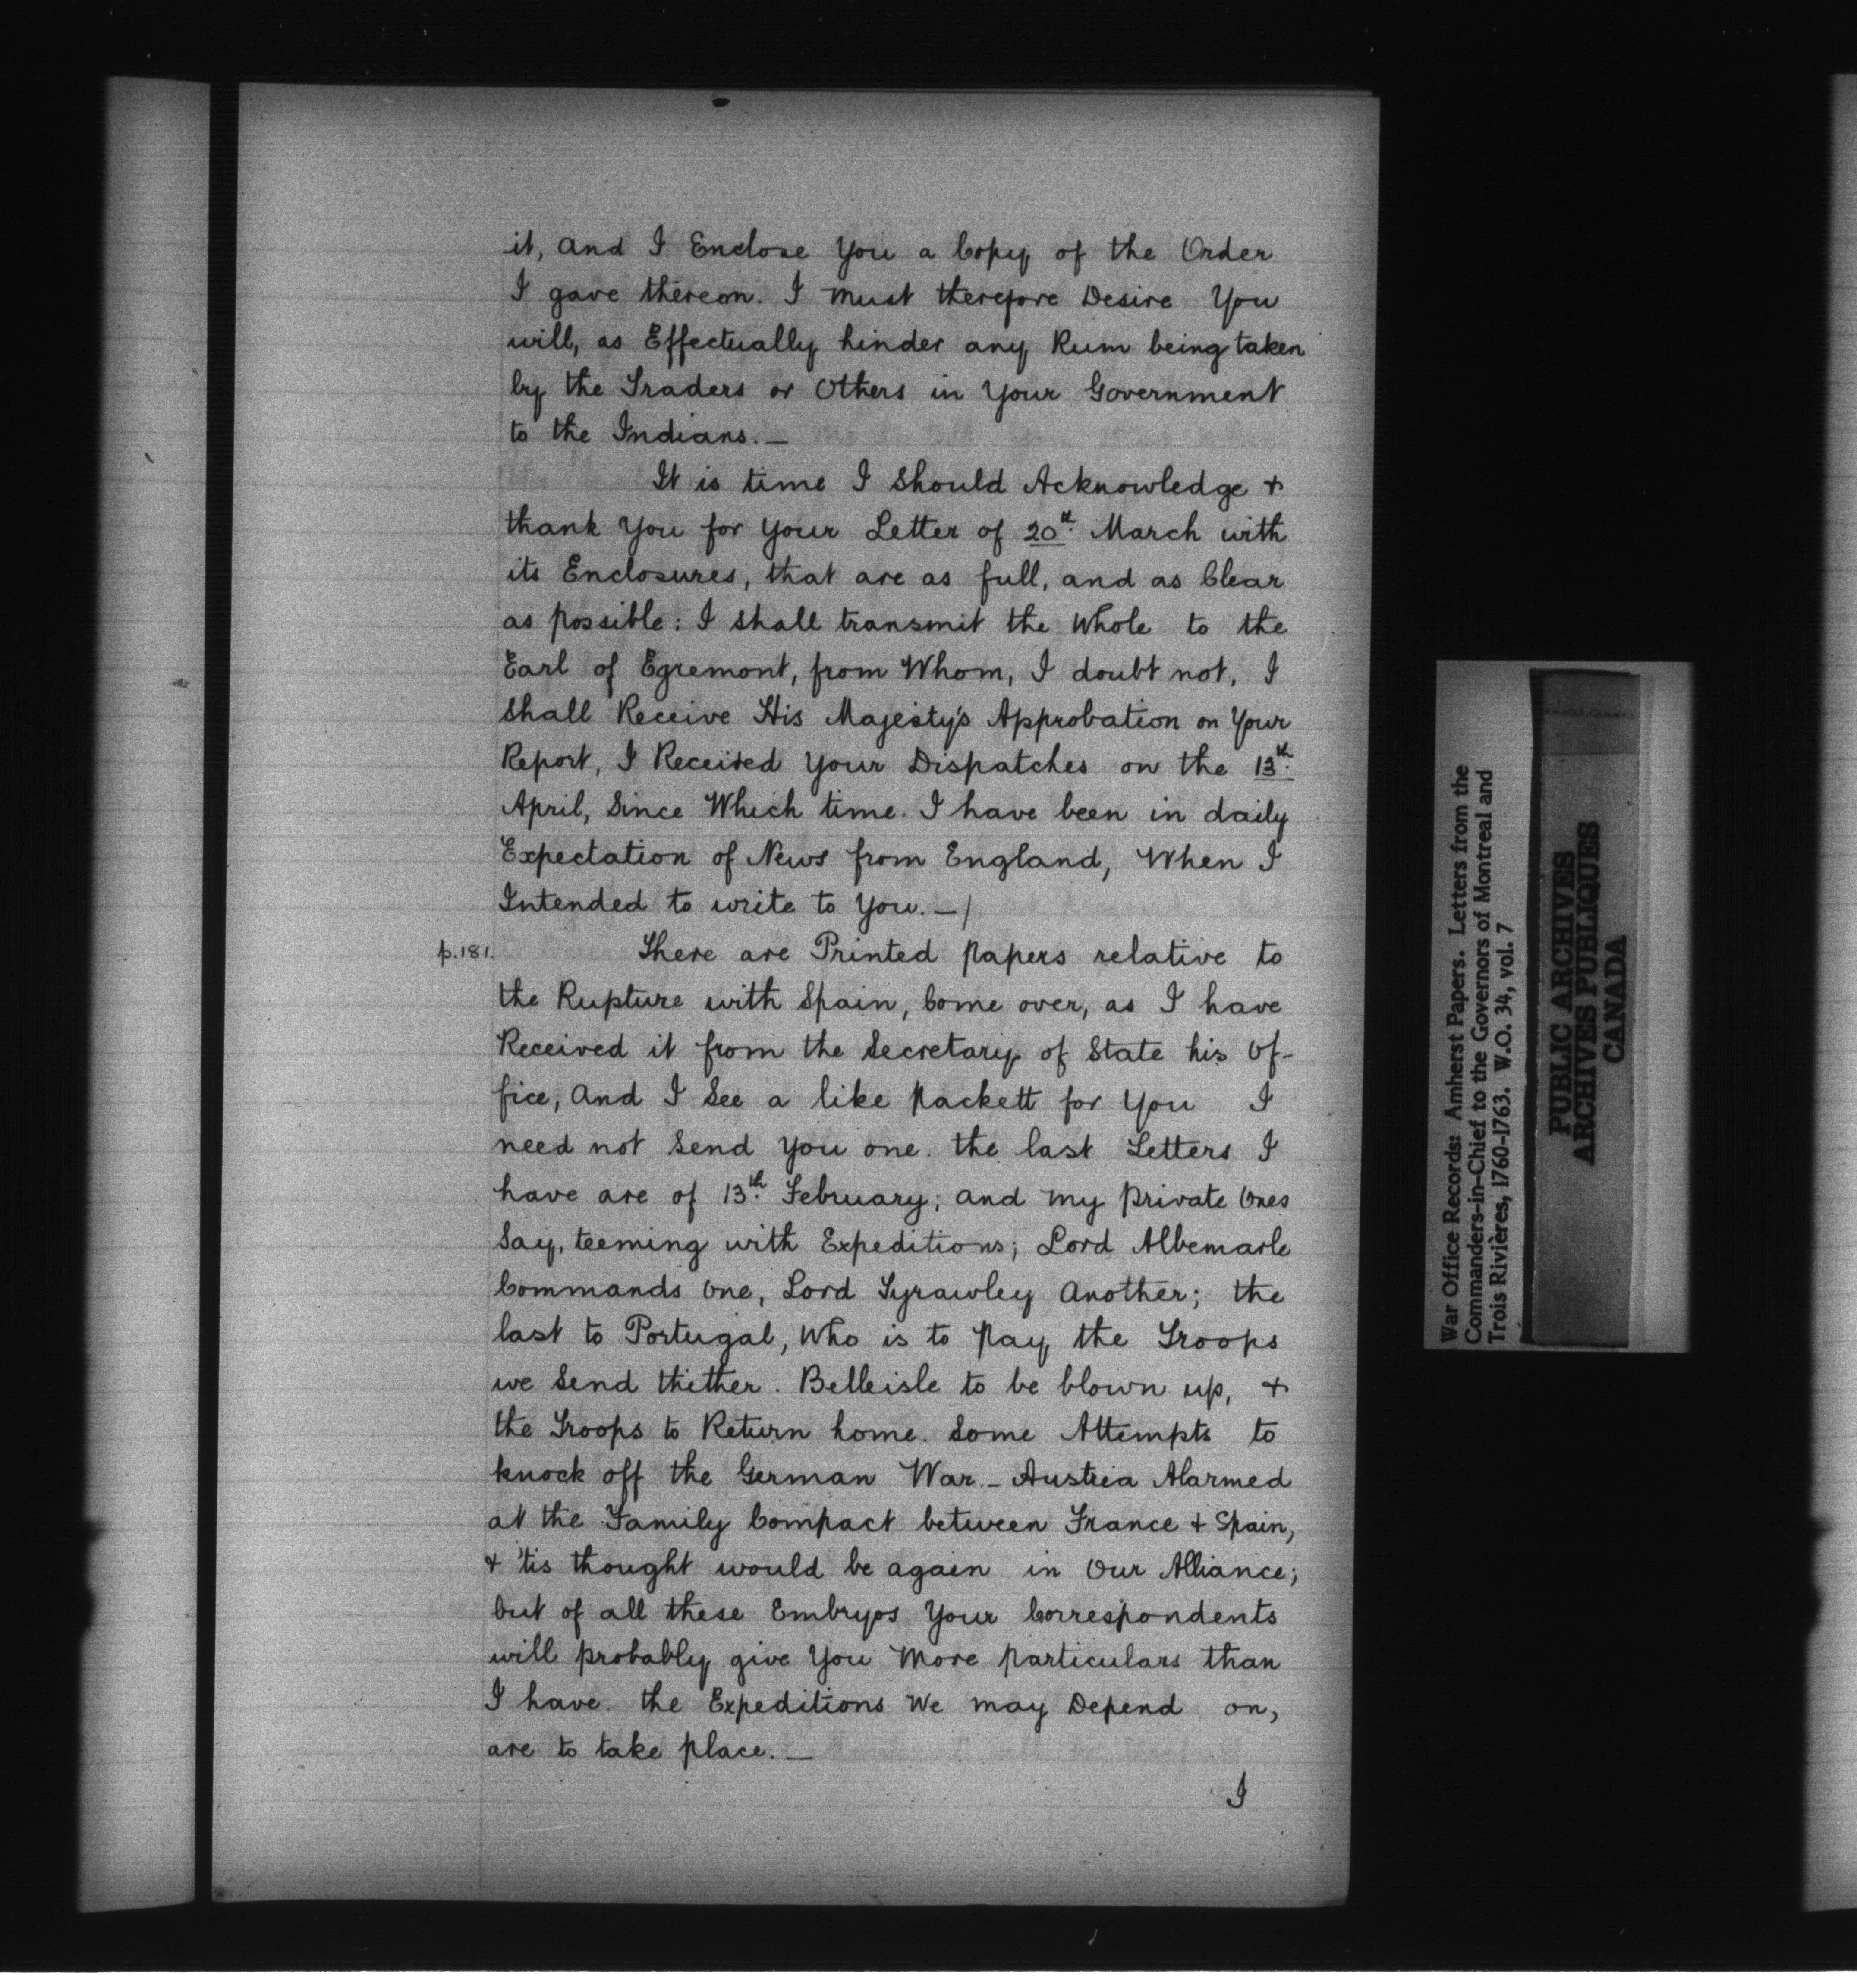 it, and I Enclose You a Copy of the Order
I gave thereon. I must therefore Desire You
will, as Effectually hinder any Rum being taken
by the Traders or Others in Your Government
to the Indians. —
It is time I should Acknowledge &
thank You for Your Letter of 20th. March with
its Enclosures, that are as full, and as Clear
as possible: I shall transmit the Whole to the
Earl of Egremont, from Whom, I doubt not, I
shall Receive His Majesty's Approbation on Your
Report, I Received Your Dispatches on the 13th.
April, Since Which time. I have been in daily
Expectation of News from England, When I
Intended to write to You. — /
p.181. There are Printed papers relative to
the Rupture with Spain, Come over, as I have
Received it from the Secretary of State his Of-
fice, And I See a like packett for You I
need not Send You one. the last Letters I
have are of 13th. February; and my private Ones
Say, teeming with Expeditions; Lord Albemarle
Commands One, Lord Tyrawley Another; the
last to Portugal, Who is to pay the Troops
we Send thither. Belleisle to be blown up, &
the Troops to Return home. Some Attempts to
knock off the German War. — Austria Alarmed
at the Family Compact between France & Spain,
& 'tis thought would be again in Our Alliance;
but of all these Embryos Your Correspondents
will probably give You More particulars than
I have. the Expeditions We may Depend on,
are to take place. —
I
War Office Records: Amherst Papers. Letters from the
Commanders-in-Chief to the Governors of Montreal and
Trois Rivières, 1760-1763. W.O. 34, vol. 7
PUBLIC ARCHIVES
ARCHIVES PUBLIQUES
CANADA